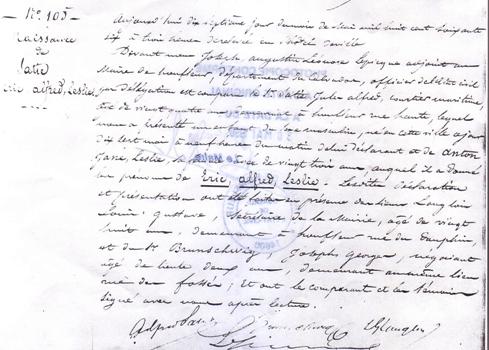 N° 105
Naissance
de
Satie
Eric alfred, Leslie
aujourd'hui dix septième jour du mois de Mai mil huit cent soixante
six à huit heures
Devant nous Joseph, augustin adjoint au
Maire de honfleur, département du Calvados, officier de l'état civil
par délégation est comparu le Sr Satie Jules alfred, courtier maritime,
âgé de vingt quatre ans, demeurant à honfleur rue haute, lequel
nous a présenté un enfant du sexe masculin, né en cette ville ce jour
dix sept mai à neuf heures du matin de lui déclarant et de anton
Jane, Leslie, son épouse âgée de vingt trois ans, auquel il a donné
les prénoms de Eric, alfred, Leslie. Lesdites déclaration
et présentation ont été faites en présence des sieurs Langlois
Louis gustave, Secrétaire de la Mairie, âgé de vingt
huit ans, demeurant à honfleur rue du Dauphin
et du Sr Brunschwig, Joseph, george, négociant
âgé de trente deux ans, demeurant au même lieu
rue des fossés; et ont le comparant et les témoins
signé avec nous après lecture.
Alfred Satie